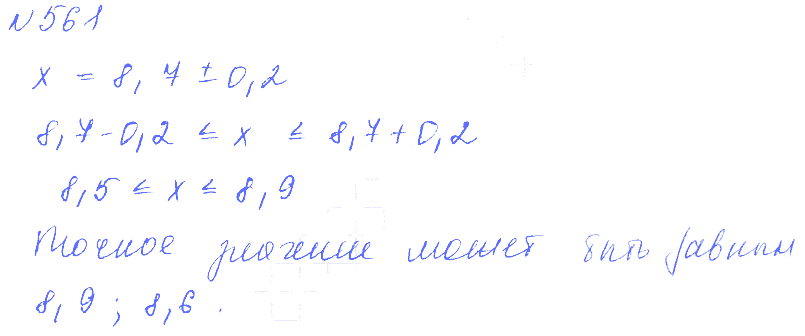 N561
x = 8,7 ± 0,2
8,7-0,2 ≤ x ≤ 8,7+0,2
8,5 ≤ x ≤ 8,9
Точное значение может быть равным
8,9; 8,6.